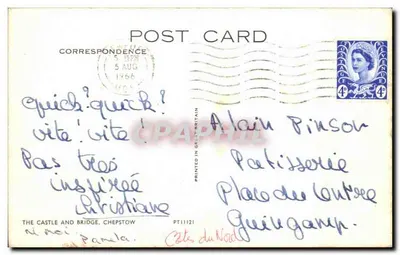 POST CARD
CORRESPONDENCE
5 AUG
1966
4D
4D
quick! quick!
vite! vite!
Pas très
inspirée
Christiane
ni moi
Pamela
Alain Pinson
Patisserie
Place du Centre
Guingamp.
Côtes du Nord
PRINTED IN GREAT BRITAIN
THE CASTLE AND BRIDGE, CHEPSTOW
PT11121